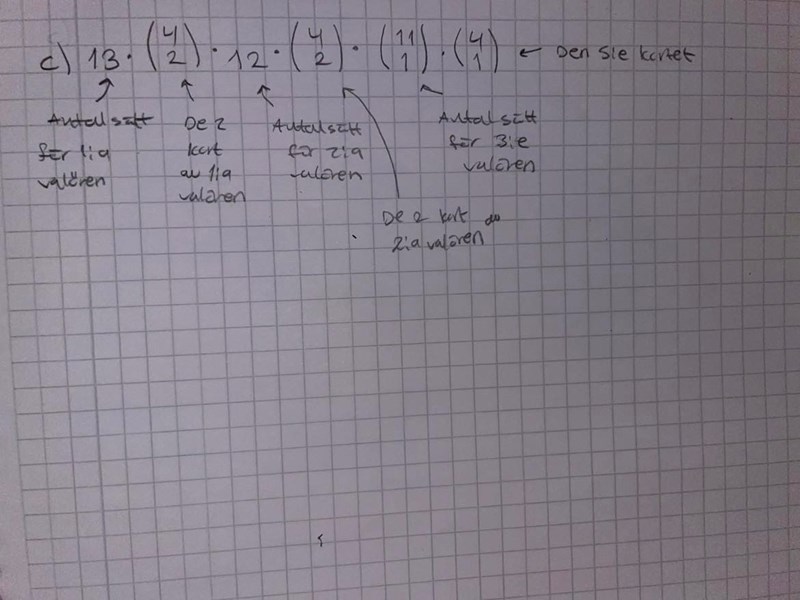 c) 13 · (4 2) · 12 · (4 2) · (11 1) · (4 1) ← Den 5te kortet
Antal sätt
för 1:a
valören
De 2
kort
av 1:a
valören
Antal sätt
för 2:a
valören
Antal sätt
för 3:e
valören
De 2 kort av
2:a valören